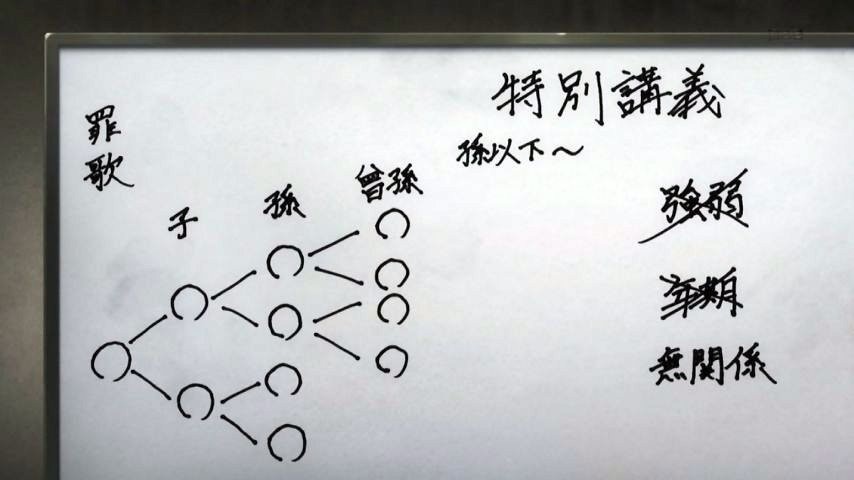 特別講義
罪歌
子
孫
曾孫
孫以下～
強弱
年期
無関係